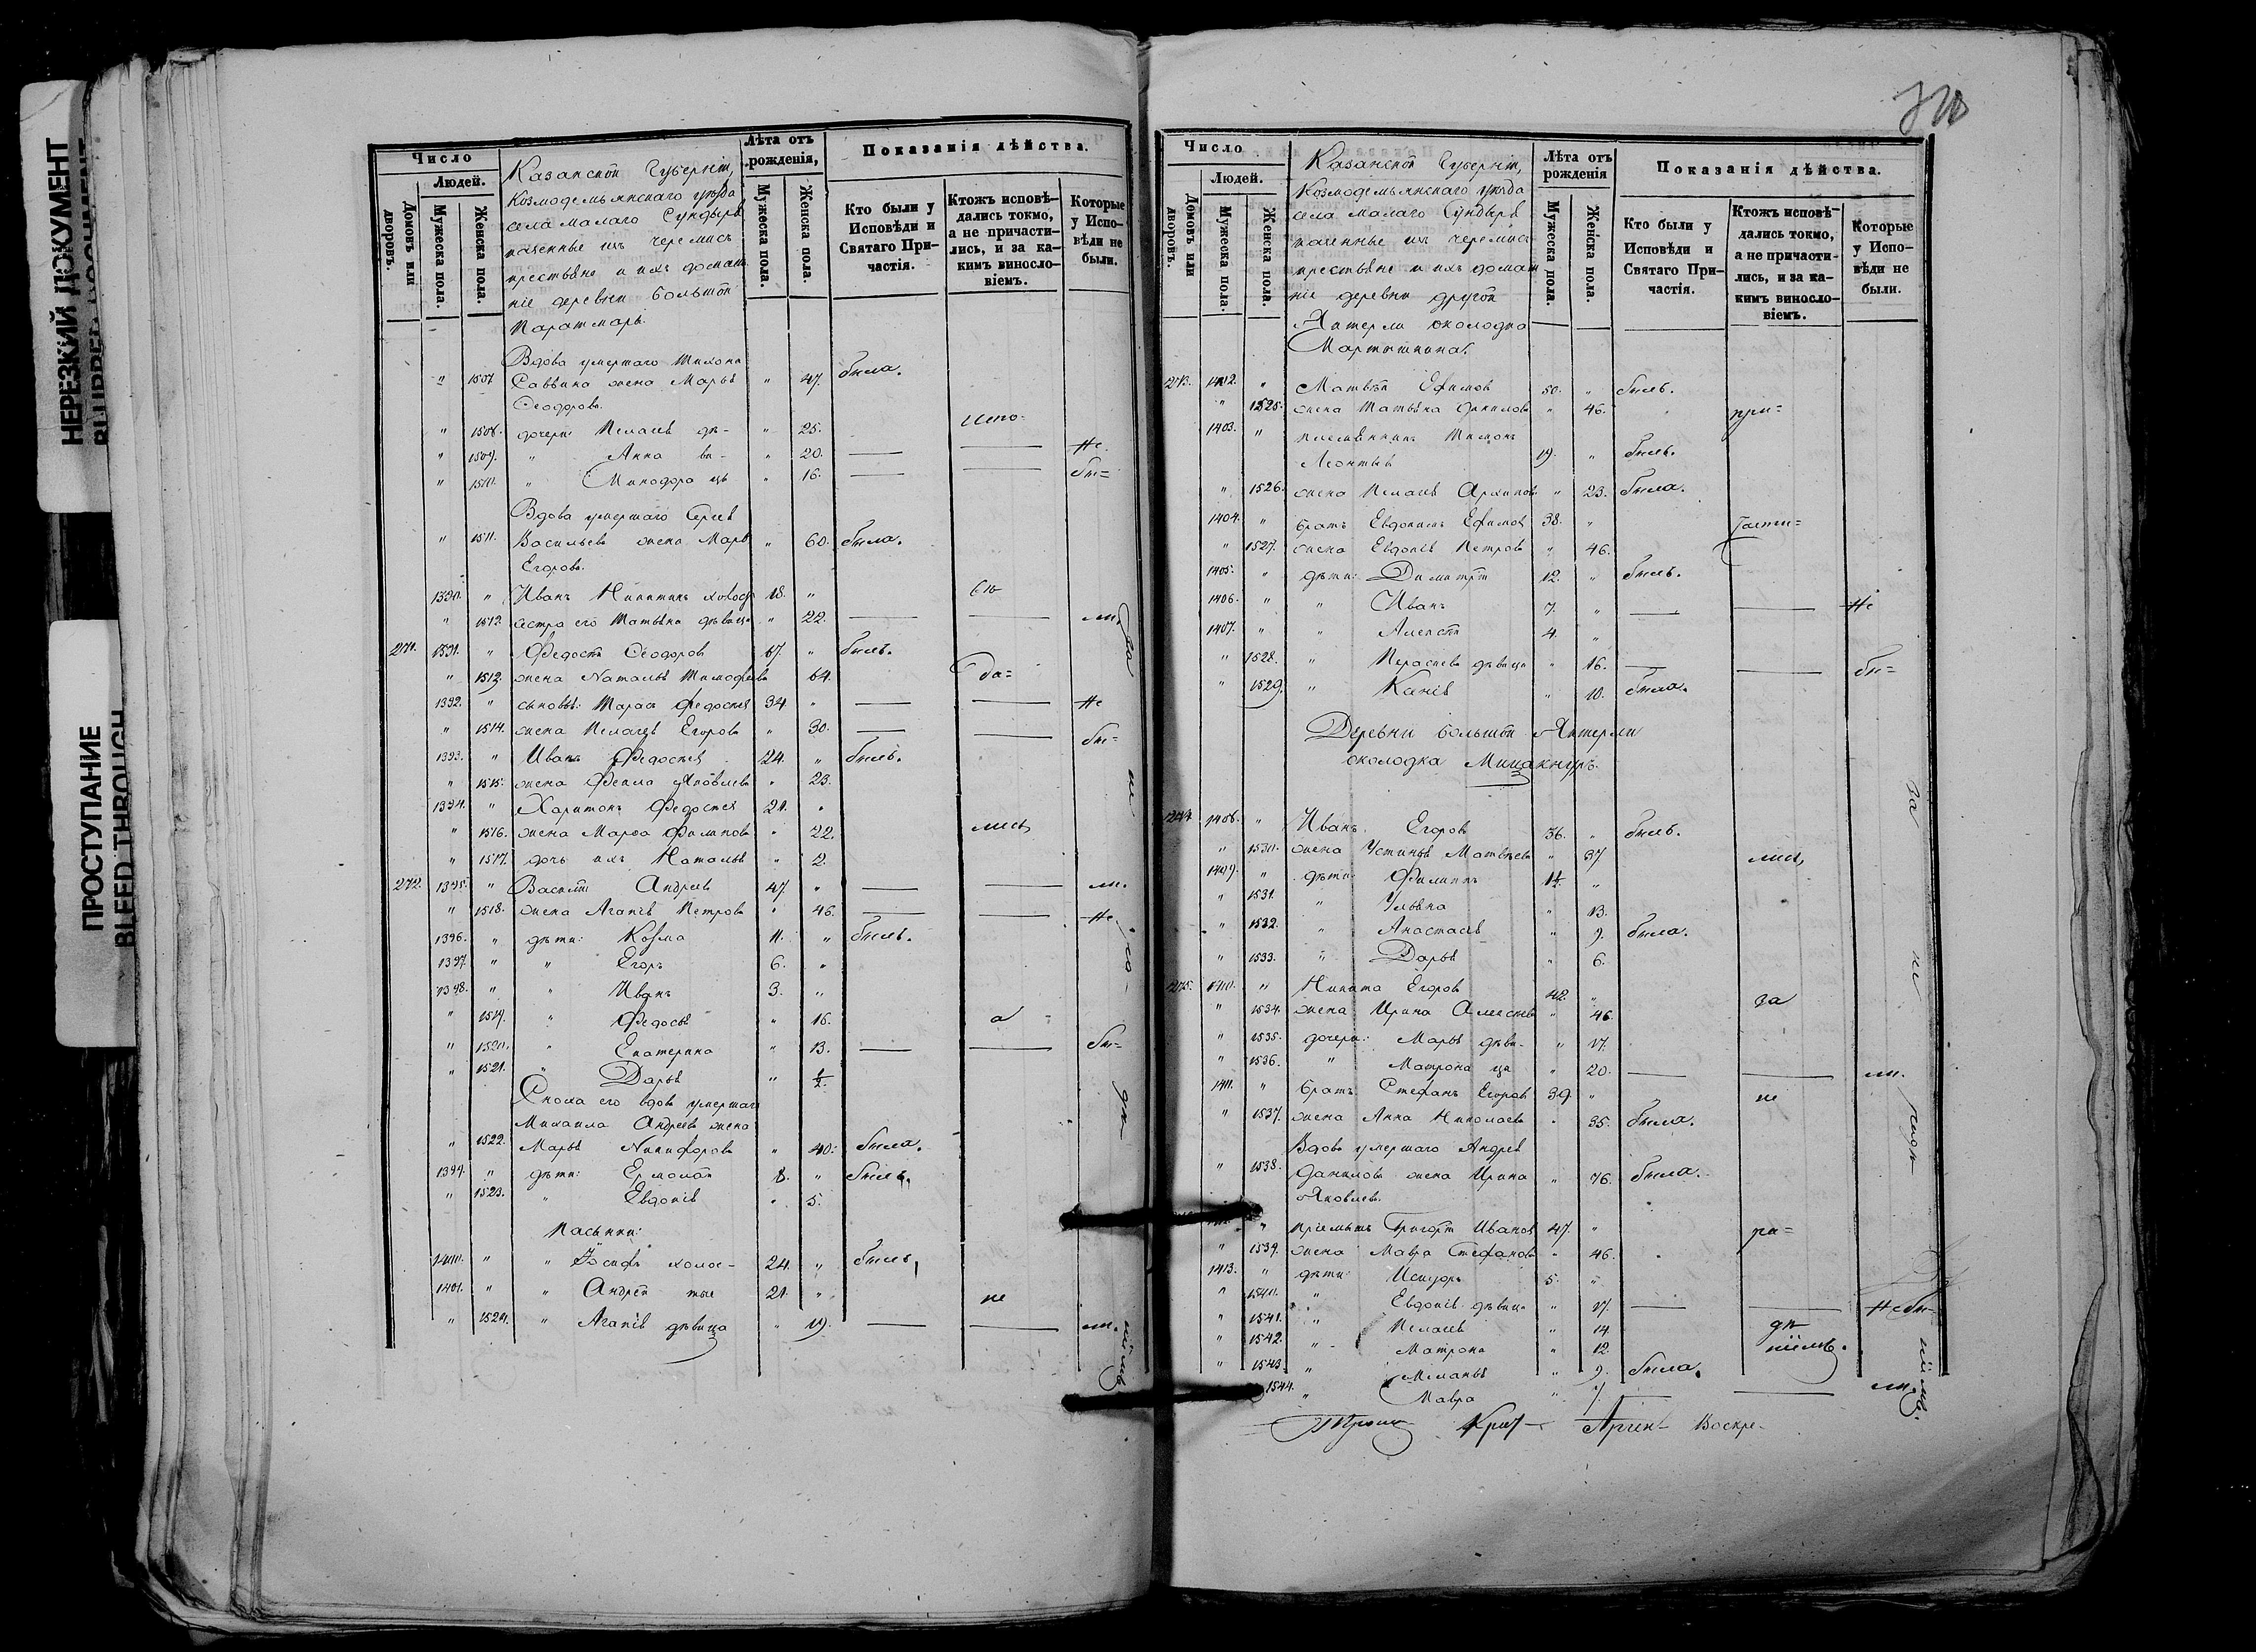 НЕРЕЗКИЙ ДОКУМЕНТ
ПРОСТУПАНИЕ
BLEED THROUGH
Число
Людей.
Домовъ или дворовъ.
Мужеска пола.
Женска пола.
Казанской Губерніи,
Козмодемьянскаго уѣзда
села малаго Сундыря
крестьяне и ихъ домаш
ніе деревни большой
Лѣта отъ рожденія,
Мужеска пола.
Женска пола.
Показанія дѣйства.
Кто были у Исповѣди и Святаго При-частія.
Ктожъ исповѣ-дались токмо, а не причасти-лись, и за ка-кимъ винosло-віемъ.
Которые у Испо-вѣди не были.
Вдова умершаго Тихона
" 1507 Саввина жена Марья " 47. была.
Ѳеодорова.
" 1508. дочери: Пелагея дѣ- " 25. испо-
" 1509. " Анна ви- " 20. Не
" 1510. " Минодора цы " 16. бы=
Вдова умершаго Сергея
" 1511. Васильева жена Марья " 60. была.
Егорова.
1390. " Иванъ Никитинъ холост 18. "
" 1512. сестра его Татьяна дѣвица " 22. ли.
271. 1391. " Федосѣй Ѳеодоровъ 67. " былъ.
" 1513. жена Наталья Тимофеева 64. да=
1392. " сыновья: Тарасъ Федосѣевъ 34. " Не
" 1514. жена Пелагея Егорова " 30. бы=
1393. " Иванъ Федосѣевъ 24. " былъ.
" 1515. жена Фекла Яковлева " 23.
1394. " Харитонъ Федосѣевъ 21. "
" 1516. жена Марѳа Филипова " 22. лись,
" 1517. дочь ихъ Наталья " 2.
272. 1395. " Василій Андреевъ 47. " ли.
" 1518. жена Агапія Петрова " 46. Не
1396. " дѣти: Козма 11. " былъ.
1397. " " Егоръ 6. "
1398. " " Иванъ 3. "
" 1519. " Федосья " 16. а
" 1520. " Екатерина " 13. бы=
" 1521. " Дарья " ½.
Сноха его вдова умершаго
Михаила Андреева жена
" 1522. Марья Никифорова " 40. была.
1399. " дѣти: Ермолай 8. " былъ.
" 1523. " Евдокія " 5.
Пасынки:
1400. " " Іосифъ холос- 24. " былъ,
1401. " " Андрей тые 21. " не
" 1524. " Агапія дѣвица " 19. ли.
Число
Людей.
Домовъ или дворовъ.
Мужеска пола.
Женска пола.
Казанской Губерніи,
Козмодемьянскаго уѣзда
села малаго Сундыря
крестьяне и ихъ домаш
ніе деревни другой
Янгерли околодка
Мартышкина.
Лѣта отъ рожденія
Мужеска пола.
Женска пола.
Показанія дѣйства.
Кто были у Исповѣди и Святаго При-частія.
Ктожъ исповѣ-дались токмо, а не причасти-лись, и за ка-кимъ винosло-віемъ.
Которые у Испо-вѣди не были.
273. 1402. " Матвѣй Ефимовъ 50. " былъ.
" 1525. жена Татьяна " 46. при=
1403. " племянникъ Тихонъ
Леонтьевъ 19. " былъ.
" 1526. жена Пелагея Архипова " 23. была.
1404. " братъ Евдокимъ Ефимовъ 38. " части=
" 1527. жена Евдокія Петрова " 46.
1405. " дѣти: Димитрій 12. " былъ.
1406. " " Иванъ 7. " Не
1407. " " Алексѣй 4. "
" 1528. " дѣвица " 16. бы=
" 1529. " Ксенія " 10. была.
Деревни большой Янгерли
околодка
274. 1408. " Иванъ Егоровъ 36. " былъ.
" 1530. жена Устинья Матвѣева " 37 лись,
1409. " дѣти: Филиппъ "
" 1531. " Ульяна " 13.
" 1532. " Анастасія " 9. была.
" 1533. " Дарья " 6.
275. 1410. " Никита Егоровъ 42. " за
" 1534. жена Ирина Алексѣева " 46.
" 1535. дочери: Марья дѣви- " 17.
" 1536. " Матрона цы " 20. ли.
1411. " братъ Стефанъ Егоровъ 39. " не
" 1537. жена Анна Николаева " 35. была.
Вдова умершаго Андрея
" 1538. Данилова жена Ирина " 76. была.
Яковлева.
" пріемышъ Григорій Ивановъ 47. " ра=
" 1539. жена Мавра Стефанова " 46.
1413. " дѣти: Исидоръ 5. "
" 1540. " Евдокія дѣвица " 17. Не бы
" 1541. " Пелагея " 14. дѣ
" 1542. " Матрона " 12. ніемъ.
" 1543. " Меланья " 9. была.
1544. " Мавра " 7. ли.
Воскре-